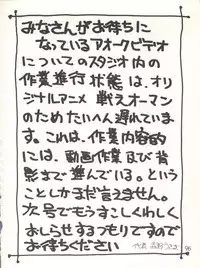 みなさんがお待ちに
なっているアオークビデオ
についてのスタジオ内の
作業進行状態は、オリ
ジナルアニメ 戦えオーマン
のためたいへん遅れていま
す。これは、作業内容的
には、動画作業及び背
景まで進んでいる。という
ことしかまだ言えません。
次号でもうすこしくわしく
おしらせするつもりですので
お待ちください